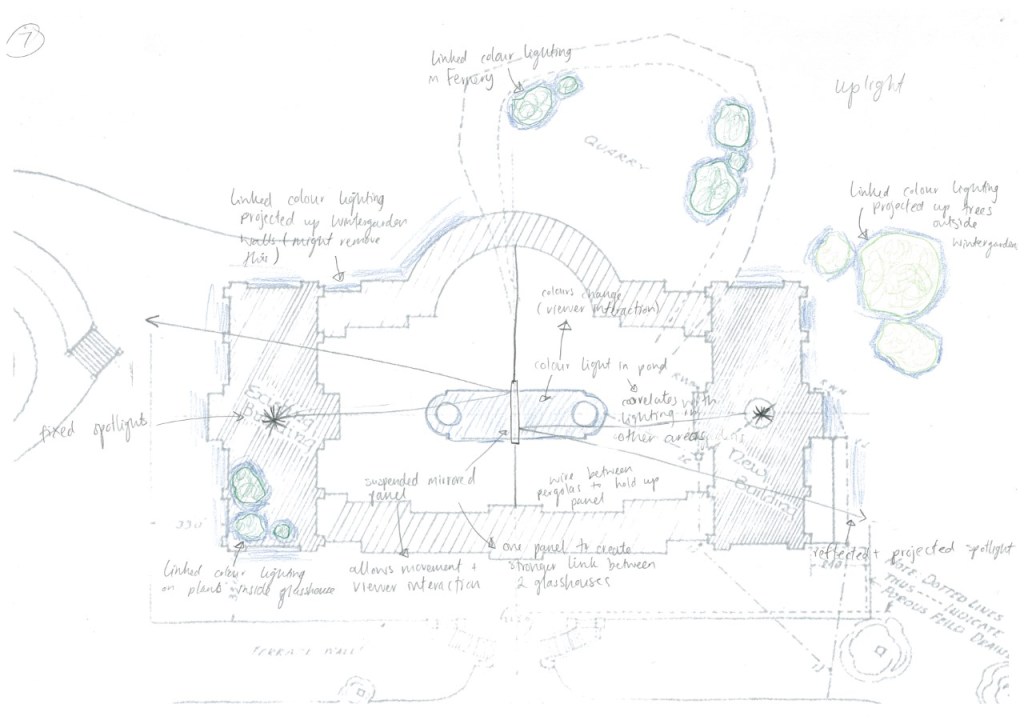 7
Linked colour lighting
in Fernery
uplight
QUARRY
Linked colour lighting
projected up Wintergarden
walls (might remove
this)
Linked colour lighting
projected up trees
outside
wintergarden
colours change
(viewer interaction)
colour light in pond
correlates with
lighting in
other areas
fixed spotlights
Building
New
Building
suspended mirrored
panel
wire between
pergolas to hold up
panel
330
Linked colour lighting
on plants inside glasshouse
allows movement +
viewer interaction
one panel to create
stronger link between
2 glasshouses
reflected + projected spotlight
NOTE: DOTTED LINES
THUS ----- INDICATE
POROUS FEILD DRAINS
TERRACE WALL